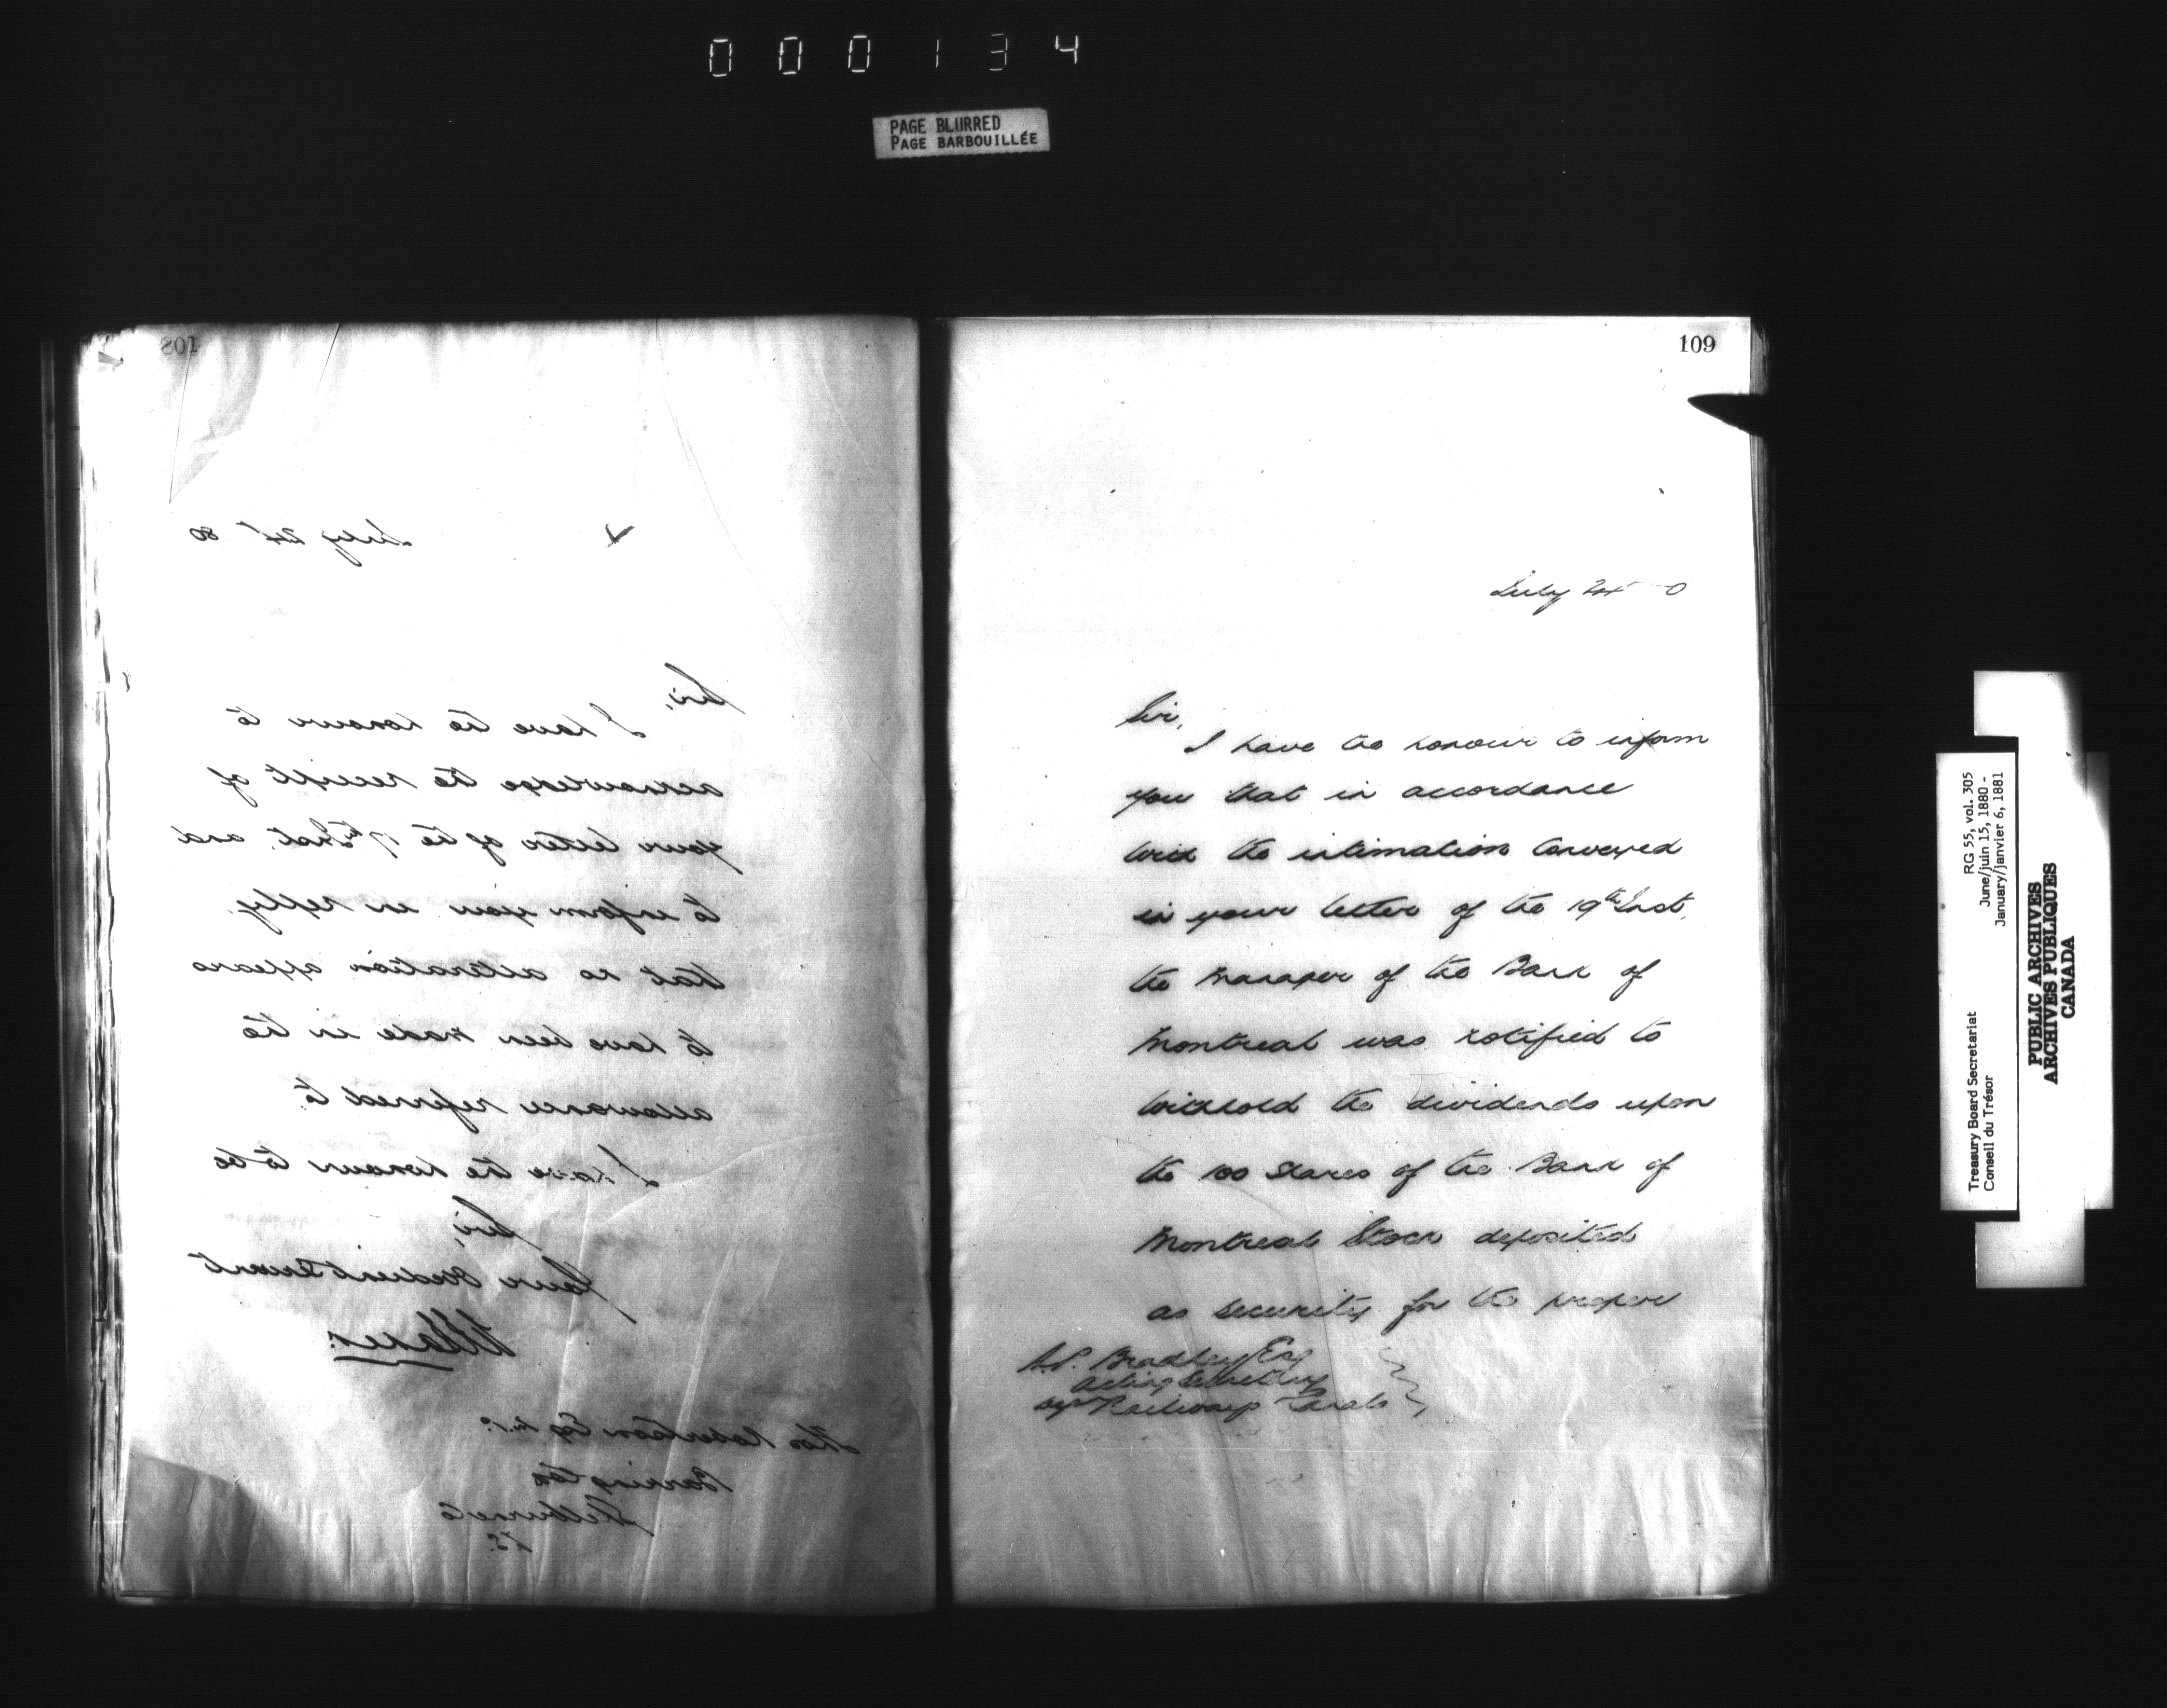 000134
PAGE BLURRED
PAGE BARBOUILLÉE
108
July 24th 80
Sir,
I have the honour to
acknowledge the receipt of
your letter of the 17th Inst. and
to inform you in reply
that no alteration appears
to have been made in the
allowance referred to.
I have the honour to be
Sir,
Your Obedient Servant
Thos Robertson Esq M.P.
Barrington
Shelburne Co
N.S.
109
July 24 0
Sir,
I have the honour to inform
you that in accordance
with the intimation conveyed
in your letter of the 19th Inst.
the Manager of the Bank of
Montreal was notified to
withhold the dividends upon
the 100 Shares of the Bank of
Montreal Stock deposited
as security for the proper
A.P. Bradley Esq
Acting Secretary
Dept Railways Canals
RG 55, vol. 305
June/juin 15, 1880 -
January/janvier 6, 1881
Treasury Board Secretariat
Conseil du Trésor
PUBLIC ARCHIVES
ARCHIVES PUBLIQUES
CANADA